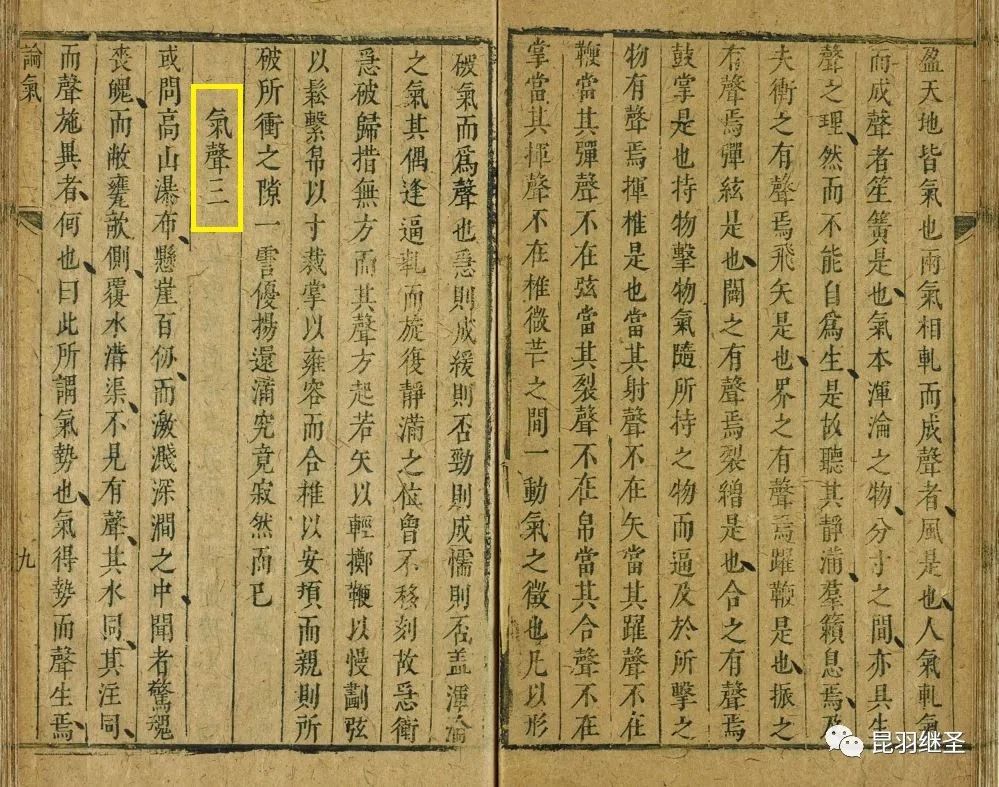 盈天地皆氣也兩氣相軋而成聲者風是也人氣軋氣
而成聲者笙簧是也氣本渾淪之物分寸之間亦具生
聲之理然而不能自爲生是故聽其靜滿羣籟息焉及
夫衝之有聲焉飛矢是也界之有聲焉躍鞭是也振之
有聲焉彈絃是也闢之有聲焉裂繒是也合之有聲焉
鼓掌是也持物擊物氣隨所持之物而逼及於所擊之
物有聲焉揮椎是也當其射聲不在矢當其躍聲不在
鞭當其彈聲不在弦當其裂聲不在帛當其合聲不在
掌當其揮聲不在椎微芒之間一動氣之徵也凡以形
破氣而爲聲也急則成緩則否勁則成懦則否盖渾淪
之氣其偶逢逼軋而旋復靜滿之位曾不移刻故急衝
急破歸措無方而其聲方起若矢以輕擲鞭以慢劃弦
以鬆繫帛以寸裁掌以雍容而合椎以安頓而親則所
破所衝之隙一霅優揚還滿究竟寂然而已
氣聲三
或問高山瀑布懸崖百仞而激濺深澗之中聞者驚魂
喪魄而敝甕欹側覆水溝渠不見有聲其水同其注同
而聲施異者何也曰此所謂氣勢也氣得勢而聲生焉
論氣
九
昆羽继圣